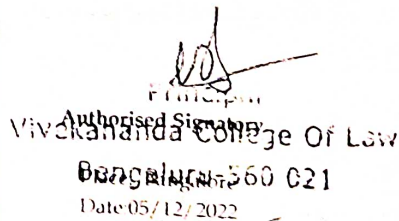 Principal
Authorised Signatory
Vivekananda College Of Law
Bengaluru-560 021
Date:05/12/2022